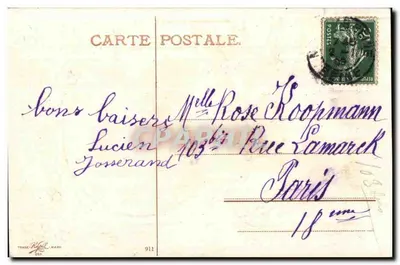 CARTE POSTALE.
bons baisers
Lucien
Josserand
Melle Rose Koopmann
103 bis Rue Lamarck
Paris
18 eme
911